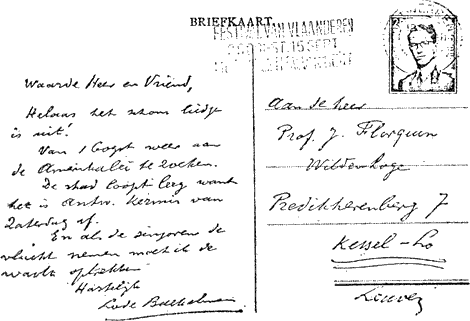 BRIEFKAART
FESTIVAL VAN VLAANDEREN
15 SEPT.
Waarde Heer en Vriend,
Helaas het schoon liedje
is uit!
Van 1 Oogst weer aan
de Amerikalei te zoeken.
De stad loopt leeg want
het is Antw. Kermis van
Zaterdag af.
En als de sinjoren de
vlucht nemen moet ik de
wacht optrekken
Hartelijk
Lode Baekelmans
Aan de heer
Prof. J. Florquin
Wildenhoge
Predikherenberg 7
Kessel-Lo
Leuven